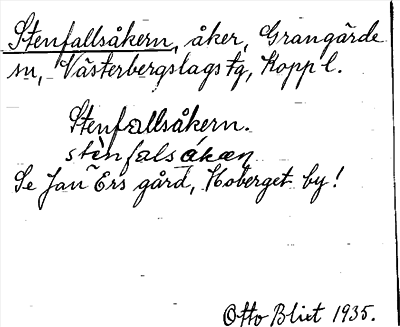 Stenfallsåkern, åker, Grangärde
sn, Västerbergslags tg, Kopp l.
Stenfallsåkern.
stènfalsákæn
Se Jan Ers gård, Hoberget by!
Otto Blixt 1935.